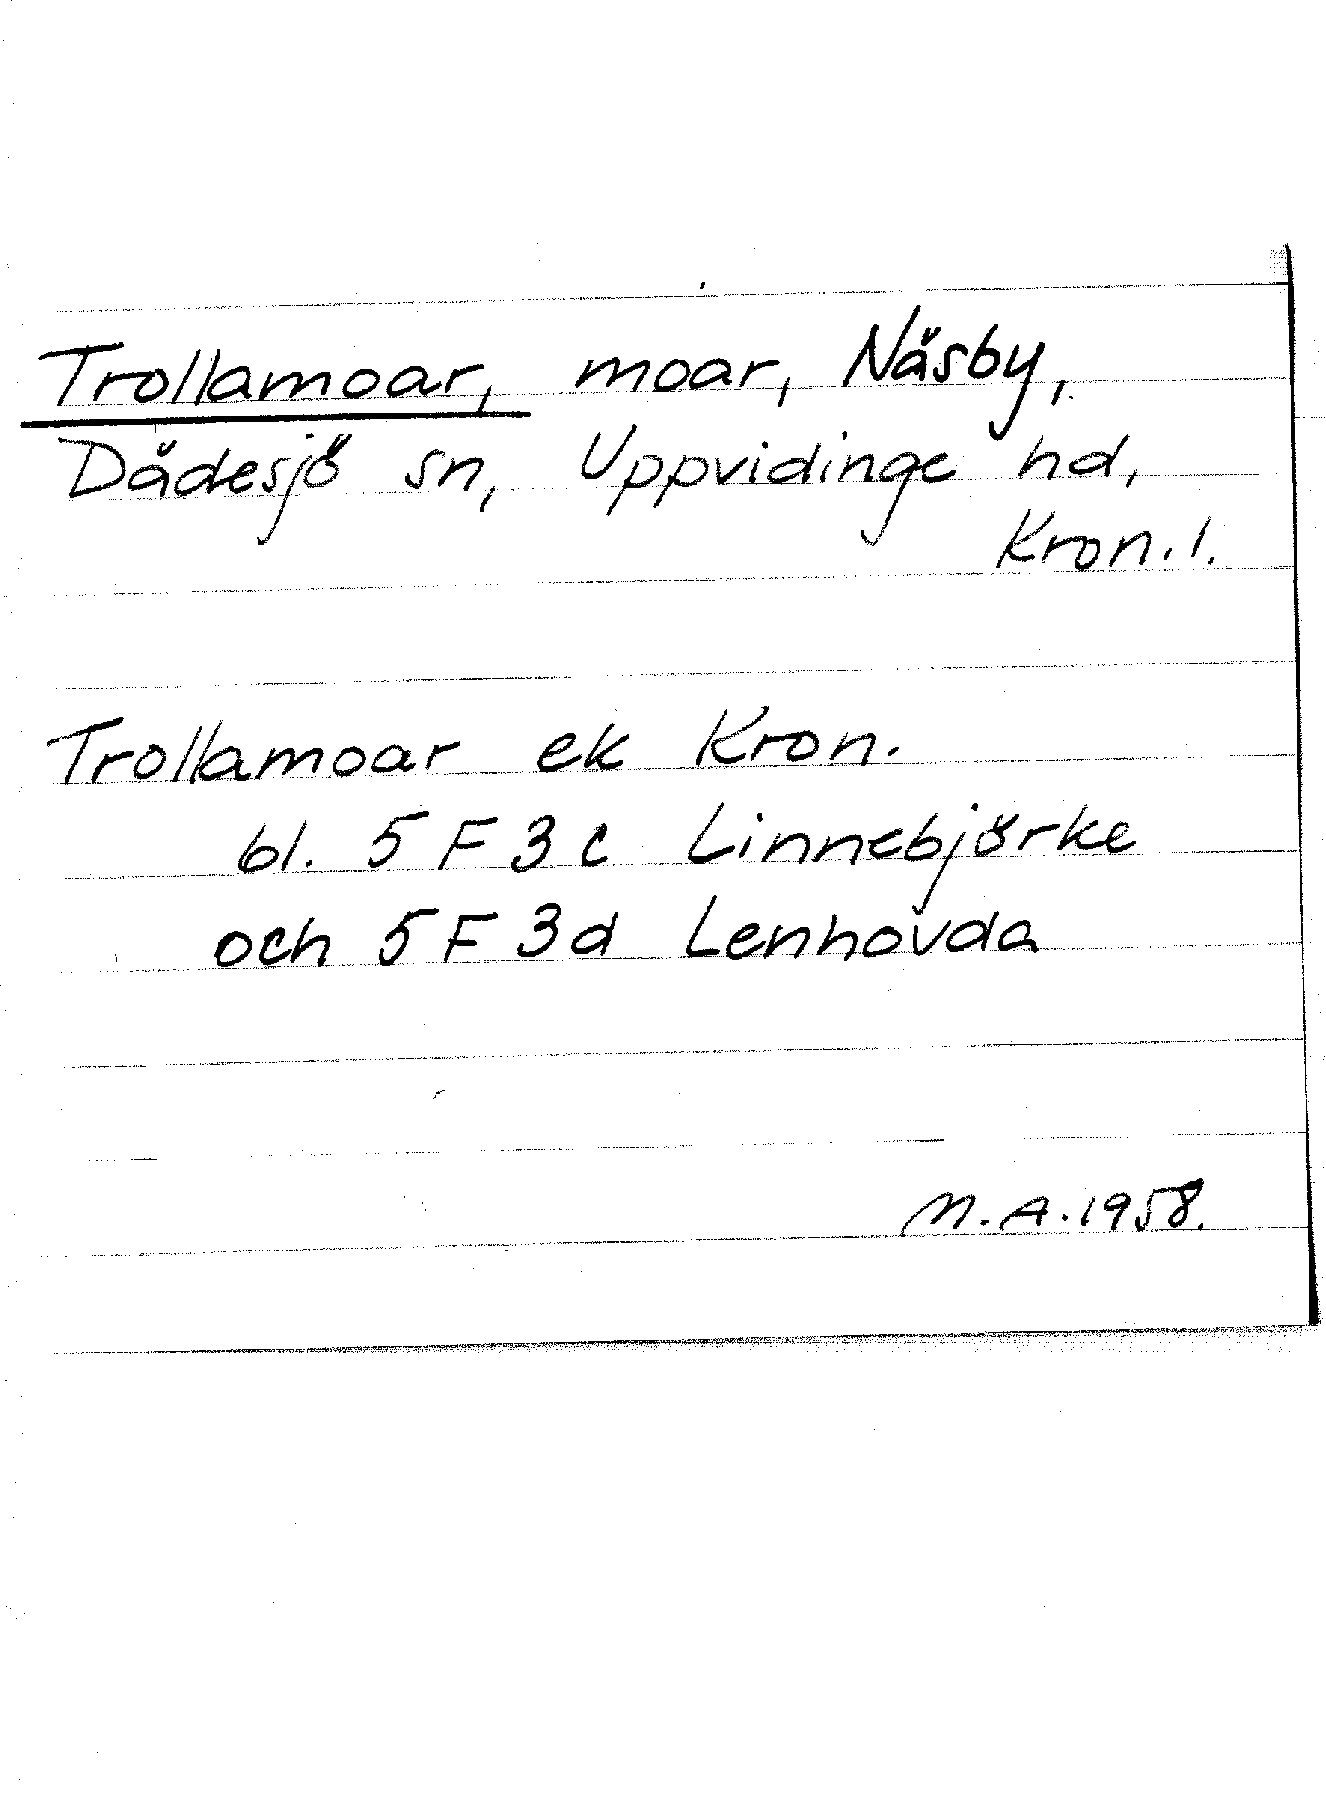 Trollamoar, moar, Näsby,
Dädesjö sn, Uppvidinge hd,
Kron. l.
Trollamoar ek Kron.
bl. 5 F 3 c Linnebjörke
och 5 F 3 d Lenhovda
M. A. 1958.